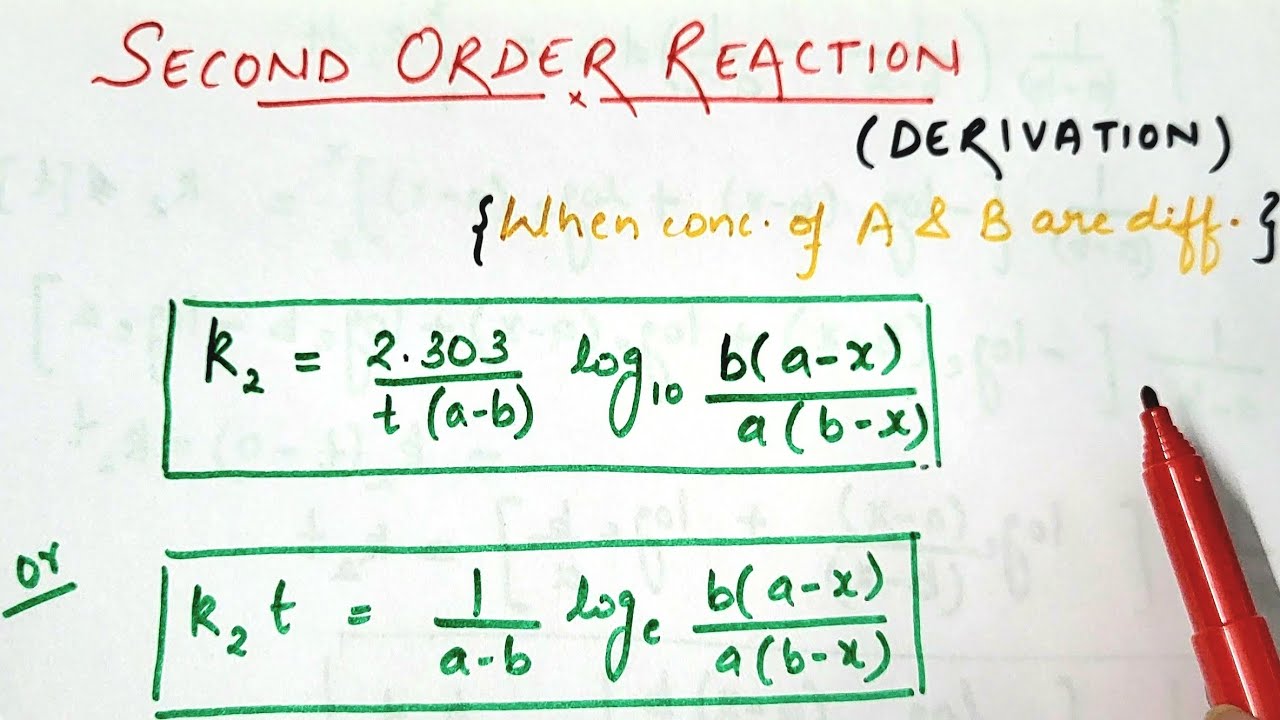 SECOND ORDER REACTION
(DERIVATION)
{When conc. of A & B are diff.}
k₂ = 2.303 / t (a-b) log₁₀ b(a-x) / a(b-x)
or
k₂ t = 1 / a-b logₑ b(a-x) / a(b-x)